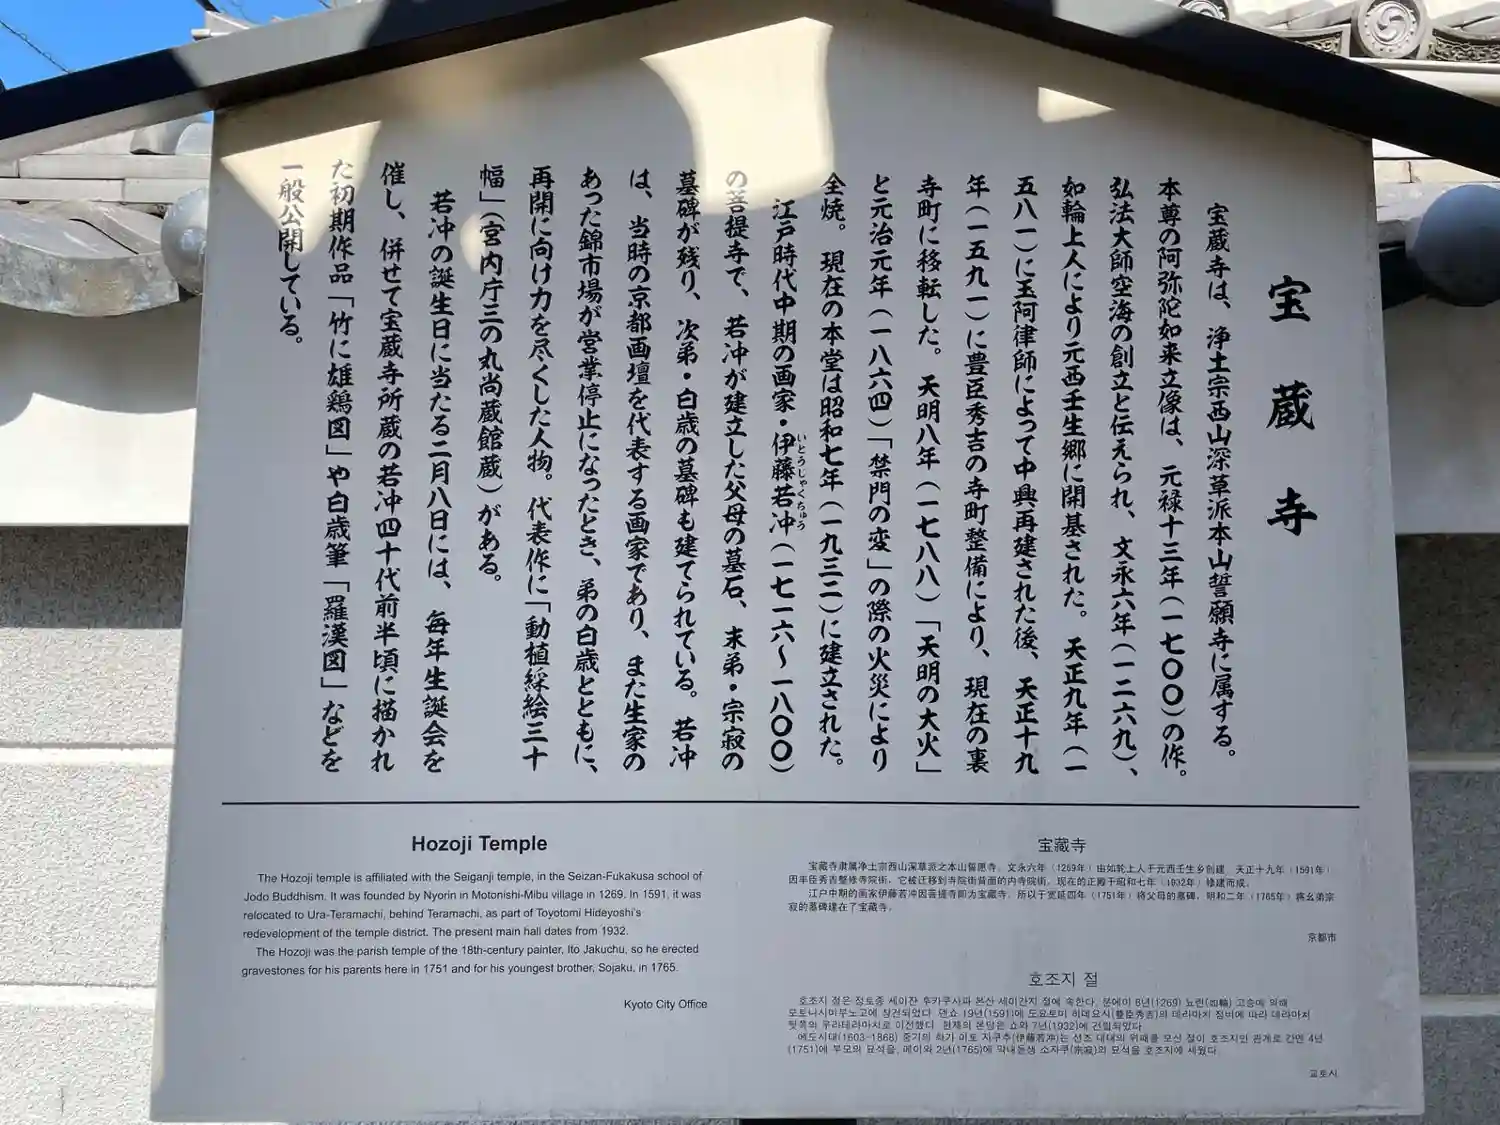 宝蔵寺
宝蔵寺は、浄土宗西山深草派本山誓願寺に属する。
本尊の阿弥陀如来立像は、元禄十三年（一七〇〇）の作。
弘法大師空海の創立と伝えられ、文永六年（一二六九）、
如輪上人により元西壬生郷に開基された。天正九年（一
五八一）に玉阿律師によって中興再建された後、天正十九
年（一五九一）に豊臣秀吉の寺町整備により、現在の裏
寺町に移転した。天明八年（一七八八）「天明の大火」
と元治元年（一八六四）「禁門の変」の際の火災により
全焼。現在の本堂は昭和七年（一九三二）に建立された。
江戸時代中期の画家・伊藤若冲（一七一六〜一八〇〇）
いとうじゃくちゅう
の菩提寺で、若冲が建立した父母の墓石、末弟・宗寂の
墓碑が残り、次弟・白歳の墓碑も建てられている。若冲
は、当時の京都画壇を代表する画家であり、また生家の
あった錦市場が営業停止になったとき、弟の白歳とともに、
再開に向け力を尽くした人物。代表作に「動植綵絵三十
幅」（宮内庁三の丸尚蔵館蔵）がある。
若冲の誕生日に当たる二月八日には、毎年生誕会を
催し、併せて宝蔵寺所蔵の若冲四十代前半頃に描かれ
た初期作品「竹に雄鶏図」や白歳筆「羅漢図」などを
一般公開している。
Hozoji Temple
The Hozoji temple is affiliated with the Seiganji temple, in the Seizan-Fukakusa school of
Jodo Buddhism. It was founded by Nyorin in Motonishi-Mibu village in 1269. In 1591, it was
relocated to Ura-Teramachi, behind Teramachi, as part of Toyotomi Hideyoshi's
redevelopment of the temple district. The present main hall dates from 1932.
The Hozoji was the parish temple of the 18th-century painter, Ito Jakuchu, so he erected
gravestones for his parents here in 1751 and for his youngest brother, Sojaku, in 1765.
Kyoto City Office
宝藏寺
宝藏寺隶属净土宗西山深草派之本山誓愿寺。文永六年（1269年）由如轮上人于元西壬生乡创建。天正十九年（1591年）
因丰臣秀吉整修寺院街，它被迁移到寺院街背面的内寺院街。现在的正殿于昭和七年（1932年）修建而成。
江户中期的画家伊藤若冲因菩提寺即为宝藏寺，所以于宽延四年（1751年）将父母的墓碑，明和二年（1765年）将幺弟宗
寂的墓碑建在了宝藏寺。
京都市
호조지 절
호조지 절은 정토종 세이잔 후카쿠사파 본산 세이간지 절에 속한다. 분에이 6년(1269) 뇨린(如輪) 고승에 의해
모토니시미부노고에 창건되었다. 덴쇼 19년(1591)에 도요토미 히데요시(豊臣秀吉)의 데라마치 정비에 따라 데라마치
뒷쪽의 우라테라마치로 이전했다. 현재의 본당은 쇼와 7년(1932)에 건립되었다.
에도시대(1603-1868) 중기의 화가 이토 자쿠추(伊藤若冲)는 선조 대대의 위패를 모신 절이 호조지인 관계로 간엔 4년
(1751)에 부모의 묘석을, 메이와 2년(1765)에 막내동생 소자쿠(宗寂)의 묘석을 호조지에 세웠다.
교토시